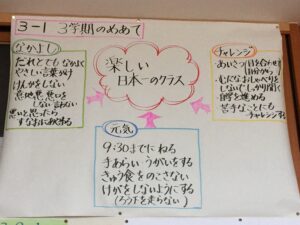 3-1 3学期のめあて
なかよし
だれとでもなかよく
やさしい言葉かけ
けんかをしない
意地悪、悪口を
しない言わない
悪いと思ったら
すなおにあやまる
楽しい
日本一のクラス
チャレンジ
あいさつ(目を合わせ
自分から)
むだなおしゃべりを
しないで(しっかり聞く)
自学を進める
苦手なことにも
チャレンジする
元気
9:30までにねる
手あらいうがいをする
きゅう食をのこさない
けがをしないようにする
(ろう下を走らない)